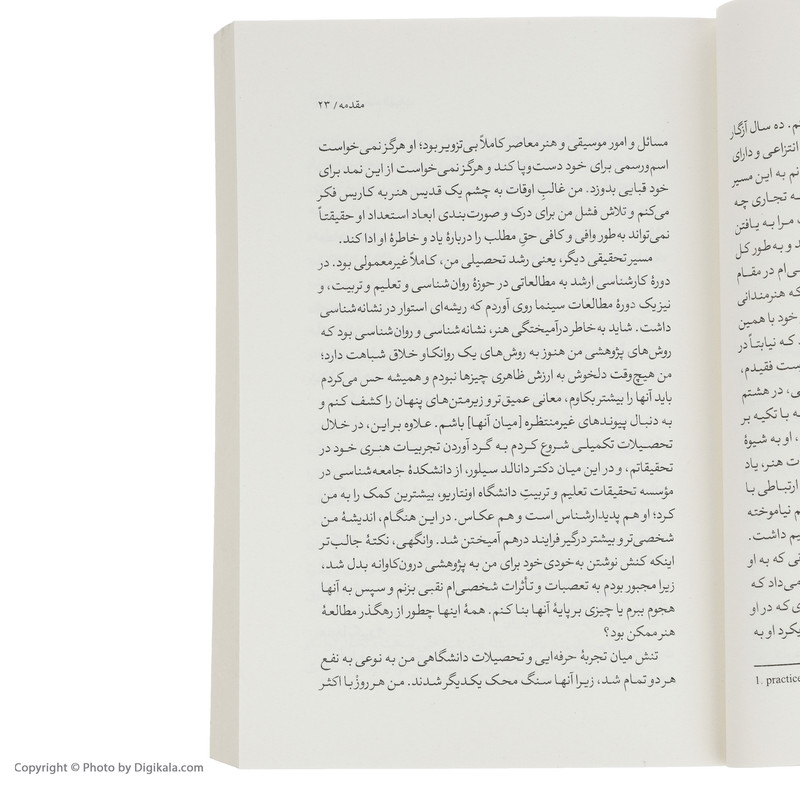 مقدمه / ۲۳
مسائل و امور موسیقی و هنر معاصر کاملاً بی‌تزویر بود؛ او هرگز نمی‌خواست
اسم‌ورسمی برای خود دست‌وپا کند و هرگز نمی‌خواست از این نمد برای
خود قبایی بدوزد. من غالبِ اوقات به چشم یک قدیس هنر به کاریس فکر
می‌کنم و تلاش فشل من برای درک و صورت‌بندی ابعاد استعداد او حقیقتاً
نمی‌تواند به‌طور وافی و کافی حقِ مطلب را دربارهٔ یاد و خاطرهٔ او ادا کند.
مسیر تحقیقی دیگر، یعنی رشد تحصیلی من، کاملاً غیرمعمولی بود. در
دورهٔ کارشناسی ارشد به مطالعاتی در حوزهٔ روان‌شناسی و تعلیم و تربیت، و
نیز یک دورهٔ مطالعات سینما روی آوردم که ریشه‌ای استوار در نشانه‌شناسی
داشت. شاید به‌خاطر درآمیختگی هنر، نشانه‌شناسی و روان‌شناسی بود که
روش‌های پژوهشی من هنوز به روش‌های یک روانکاو خلاق شباهت دارد؛
من هیچ‌وقت دلخوش به ارزش ظاهری چیزها نبودم و همیشه حس می‌کردم
باید آنها را بیشتر بکاوم، معانی عمیق‌تر و زیرمتن‌های پنهان را کشف کنم و
به دنبال پیوندهای غیرمنتظره [میان آنها] باشم. علاوه بر این، در خلال
تحصیلات تکمیلی شروع کردم به گرد آوردن تجربیات هنری خود در
تحقیقاتم، و در این میان دکتر دانالد سیلور، از دانشکدهٔ جامعه‌شناسی در
مؤسسه تحقیقات تعلیم و تربیتِ دانشگاه اونتاریو، بیشترین کمک را به من
کرد؛ او هم پدیدارشناس است و هم عکاس. در این هنگام، اندیشهٔ من
شخصی‌تر و بیشتر درگیر فرایند درهم آمیختن شد. وانگهی، نکتهٔ جالب‌تر
اینکه کنش نوشتن به‌خودی‌خود برای من به پژوهشی درون‌کاوانه بدل شد،
زیرا مجبور بودم به تعصبات و تأثرات شخصی‌ام نقبی بزنم و سپس به آنها
هجوم ببرم یا چیزی بر پایهٔ آنها بنا کنم. همهٔ اینها چطور از رهگذر مطالعهٔ
هنر ممکن بود؟
تنش میان تجربهٔ حرفه‌ایی و تحصیلات دانشگاهی من به نوعی به نفع
هر دو تمام شد، زیرا آنها سنگ محک یکدیگر شدند. من هر روزْ با اکثر
ده سال آزگار
انتزاعی و دارای
به این مسیر
تجاری چه
مرا به یافتن
و به‌طور کل
در مقام
که هنرمندانی
خود با همین
که نیابتاً در
فقیدم،
در هشتم
با تکیه بر
او به شیوهٔ
هنر، یاد
ارتباطی با
نیاموخته
داشت.
که به او
می‌داد که
که در او
او به
1. practice
Copyright © Photo by Digikala.com